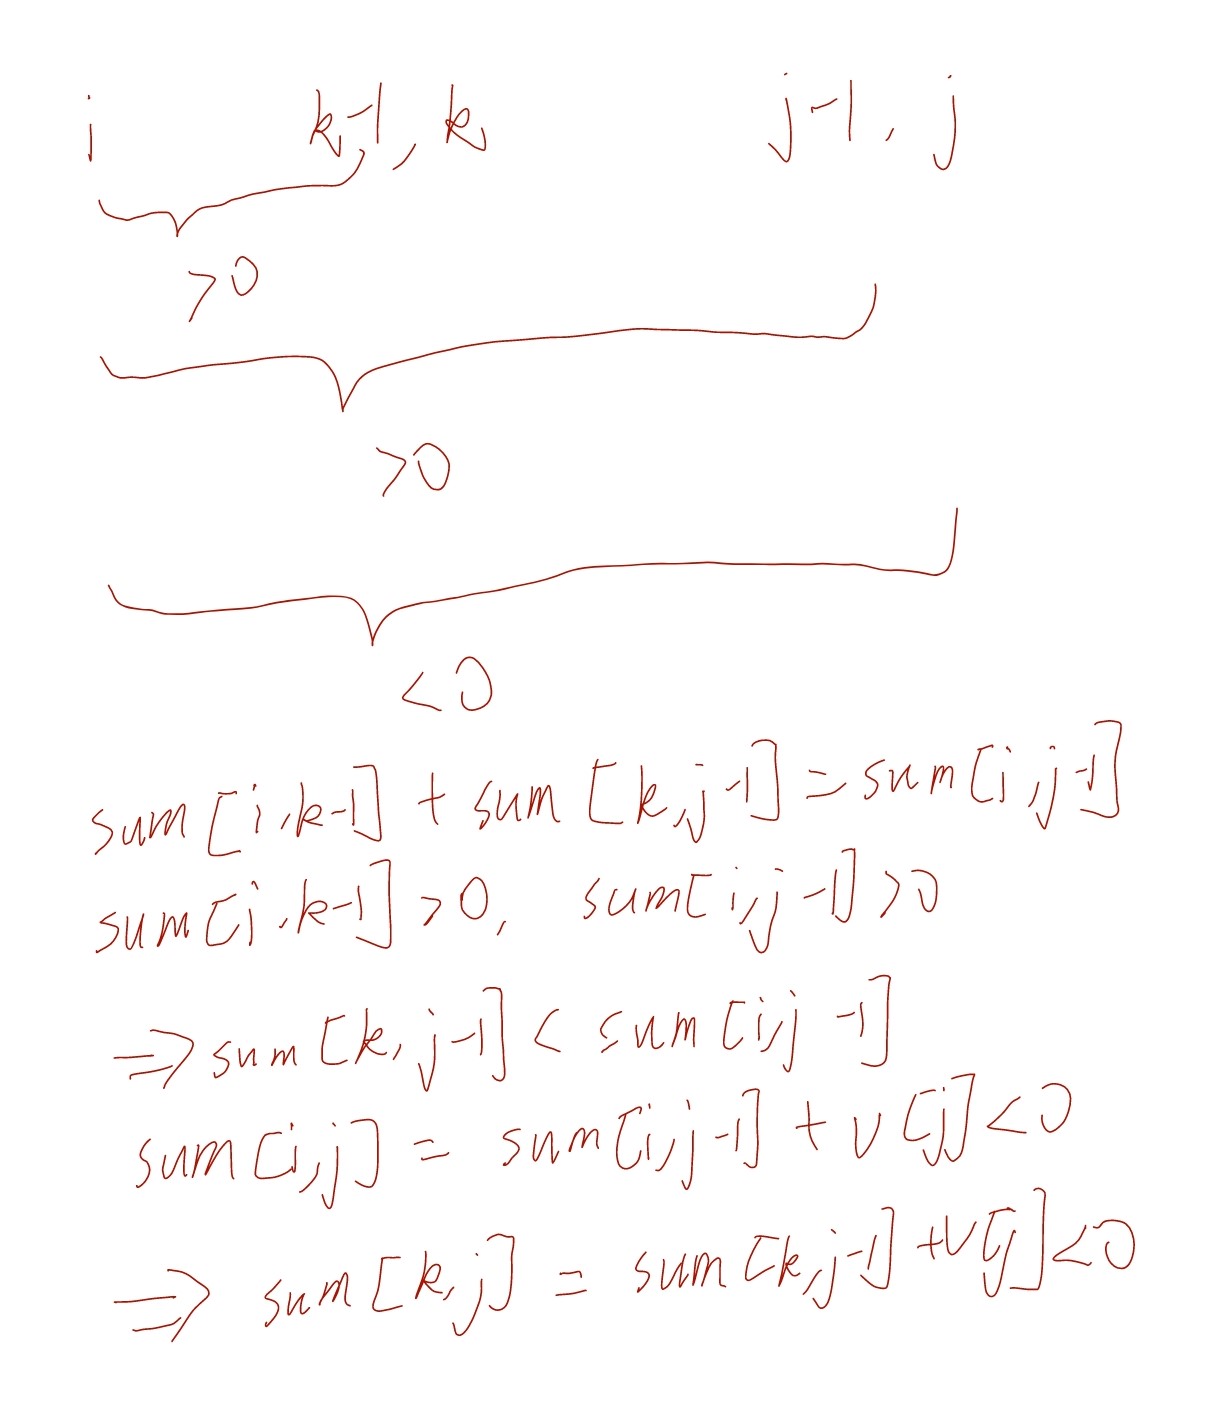 i k-1, k j-1, j
>0
>0
<0
sum[i,k-1] + sum[k,j-1] = sum[i,j-1]
sum[i,k-1]>0, sum[i,j-1]>0
⇒ sum[k,j-1] < sum[i,j-1]
sum[i,j] = sum[i,j-1] + v[j]<0
⇒ sum[k,j] = sum[k,j-1]+v[j]<0